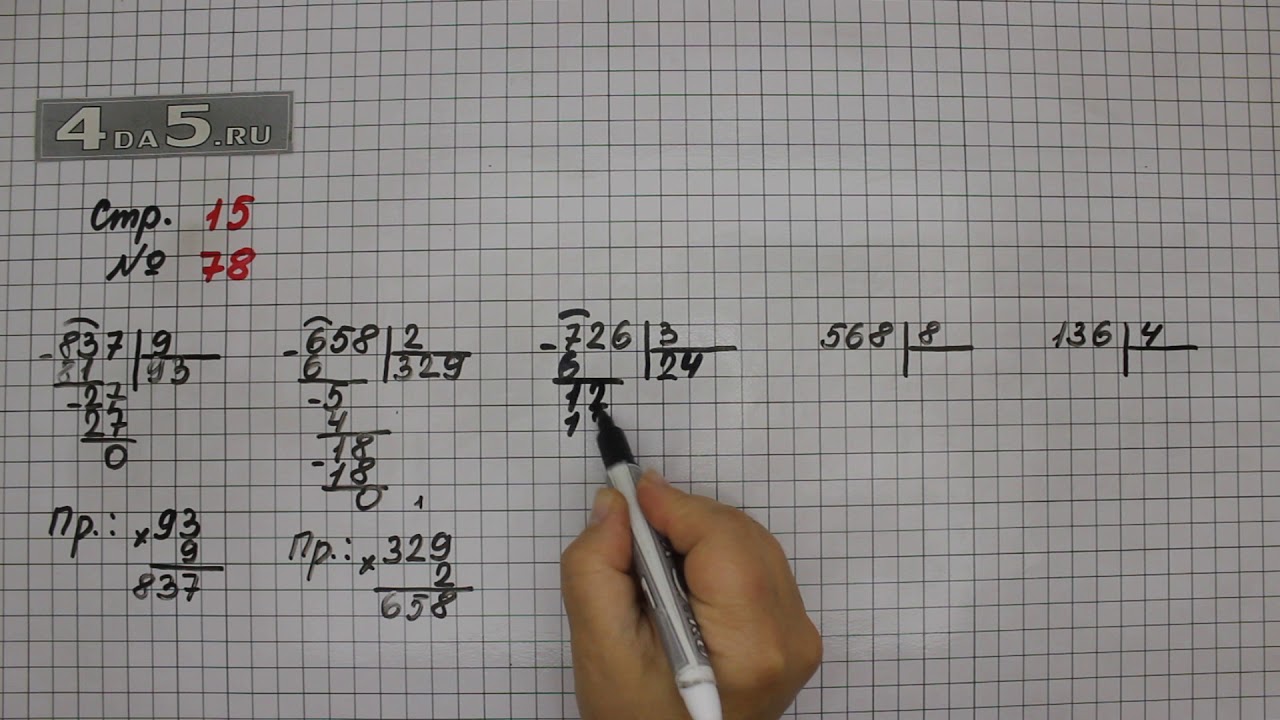 4DA5.RU
Стр. 15
№ 78
-837 | 9
81 | 93
-27
27
0
Пр.: ×93
9
837
-658 | 2
6 | 329
-5
4
-18
18
0
1
Пр.: ×329
2
658
-726 | 3
6 | 24
12
1
568 | 8
136 | 4